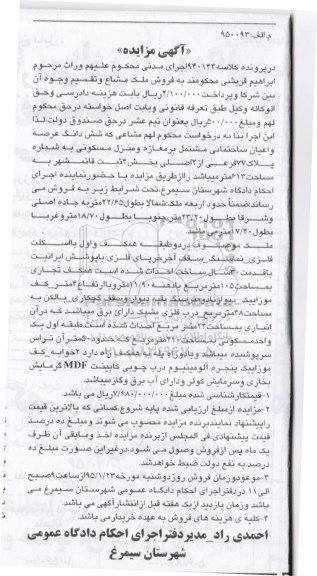 م.الف:۹۵۰۰۹۳
«آگهی مزایده»
درپرونده کلاسه۹۴۰۱۴۴اجرای مدنی محکوم علیهم وراث مرحوم
ابراهیم قریشی محکومند به فروش ملک مشاع وتقسیم وجوه آن
بین شرکا وپرداخت۲/۱۰۰/۰۰۰ریال بابت هزینه دادرسی وحق
الوکاله وکیل طبق تعرفه قانونی وبابت اصل خواسته درحق محکوم
لهم ومبلغ۵۰۰/۰۰۰ریال بعنوان نیم عشر درحق صندوق دولت،لذا
این اجرا بنا به درخواست محکوم لهم مشاعی که شش دانگ عرصه
واعیان ساختمانی مشتمل برمغازه ومنزل مسکونی به شماره
پلاک۷۷فرعی از۲اصلی بخش۲ثبت قائمشهر به
مساحت۶۱۳مترمیباشد راازطریق مزایده با حضورنماینده اجرای
احکام دادگاه شهرستان سیمرغ،تحت شرایط زیر به فروش می
رساند؛ضمنأ حدود اربعه ملک:شمالا بطول۲۲/۶۵متربه جاده اصلی
وشرقا بطول۲۳/۲۰متر،جنوبا بطول۱۸/۷۰متروغربا
بطول۱۷/۴۰متر می باشد
ملک موصوف دردوطبقه همکف واول بااسکلت
فلزی نمابتینگ سقف آخرخرپای فلزی باپوشش ایرانیت
باقدمت۳۰سال ساخت احداث شده است همکف تجاری
بمساحت۱۰۵مترمربع بادهنه۱۱/۹۰متروبا ارتفاع۴متر کف
موزاییک دیوارتایک متر سنگ بقیه دیوار وسقف گچکاری بالکن به
مساحت۳۸مترمربع درب فلزی مشبک دارای برق میباشد که درآن
انباری بمساحت۲۲متر مربع احداث شده است طبقه اول یک
واحدمسکونی بمساحت۲۱۰مترمربع که حدود۵۰متر آن تراس
سرپوشیده میباشد وباپله راه به همکف راه دارد ۲خوابه کف
موزاییک پنجره آلومینیوم درب چوبی کابینت MDF گرمایش
بخاری وسرمایش کولر ودارای آب برق وگازمیباشد
۱-قیمتکارشناسی شده مبلغ۷/۶۸۰/۰۰۰/۰۰۰ریال می باشد.
۲-مزایده از مبلغ ارزیابی شده پایه شروع،کسانی که بالاترین قیمت
راپیشنهاد نمایندبرنده مزایده محسوب می شوند ومبلغ ده درصد
قیمت پیشنهادی،فی المجلس ازبرنده مزایده اخذ ومابقی آن ظرف
یک ماه پس ازفروش وصول می شود،در غیراین صورت مبلغ ده
درصدبه نفع دولت ضبط خواهدشد.
۳-موعودوزمان فروش روزدوشنبه مورخه۹۵/۱/۲۳ازساعت۹صبح
الی۱۱ دردفتراجرای احکام دادگاه عمومی شهرستان سیمرغ می
باشد وزمان بازدید ازیک هفته قبل ازانتشارآگهی می باشد.
۴-کلیه ی هزینه های فروش به عهده خریدارمی باشد.
احمدی راد_مدیردفتراجرای احکام دادگاه عمومی
شهرستان سیمرغ